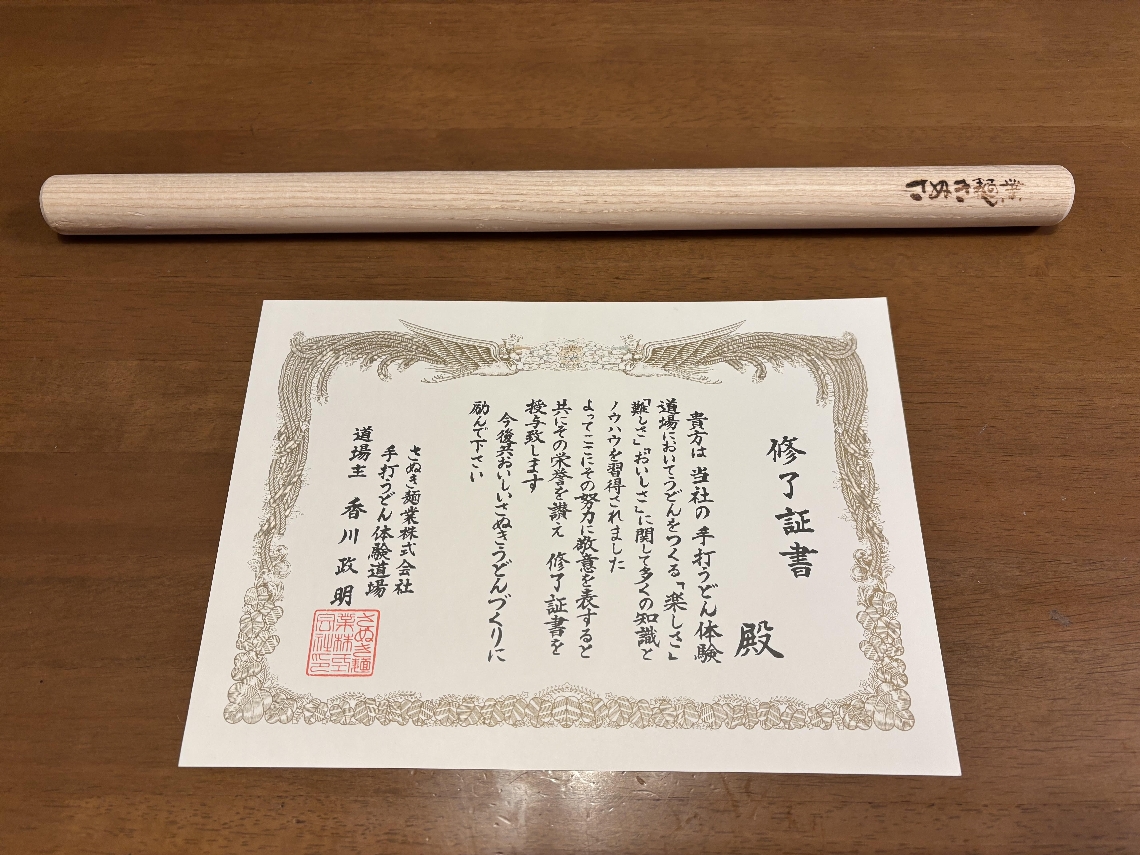 さぬき麺業
修了証書
殿
貴方は 当社の 手打うどん体験
道場においてうどんをつくる「楽しさ」
「難しさ」「おいしさ」に関して多くの知識と
ノウハウを習得されました
よってここにその努力に敬意を表すると
共にその栄誉を讃え 修了証書を
授与致します
今後共おいしいさぬきうどんづくりに
励んで下さい
さぬき麺業株式会社
手打うどん体験道場
道場主 香川政明
さぬき麺
業株式
会社印